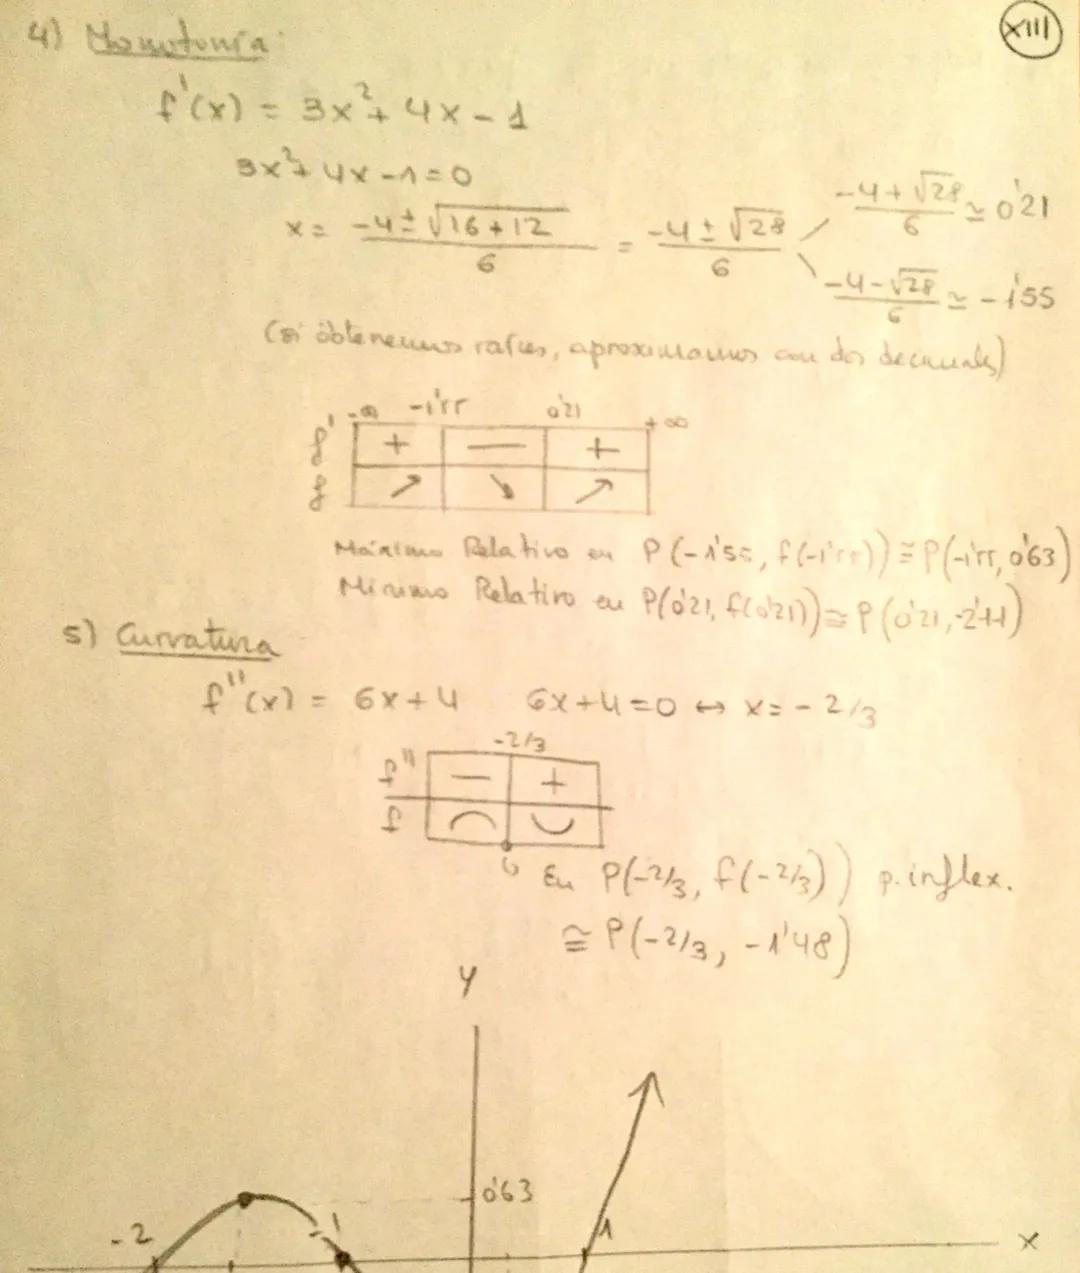 XIII
4) Monotonía:
f'(x) = 3x²+ 4x - 1
3x²+ 4x - 1 = 0
x = (-4 ± √(16 + 12))/6 = (-4 ± √28)/6 (-4 + √28)/6 ≅ 0'21
(-4 - √28)/6 ≅ -1'55
(si obtenemos raíces, aproximamos con dos decimales)
-∞ -1'55 0'21 +∞
f' + — +
f ↗ ↘ ↗
Máximo Relativo en P(-1'55, f(-1'55)) ≅ P(-1'55, 0'63)
Mínimo Relativo en P(0'21, f(0'21)) ≅ P(0'21, -2'11)
5) Curvatura
f''(x) = 6x + 4 6x + 4 = 0 ↔ x = - 2/3
-2/3
f'' — +
f ⌒ ⌣
En P(-2/3, f(-2/3)) p. inflex.
≅ P(-2/3, -1'48)
y
0'63
-2 -1 1 x